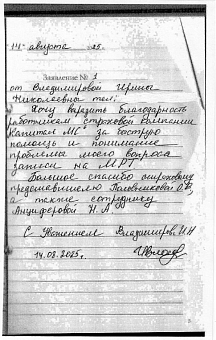 14 августа 25.
Заявление № 1
от Владимировой Ирины
Николаевны тел:
Хочу выразить благодарность
работникам страховой компании
Капитал МС за быструю
помощь и понимание
проблемы моего вопроса
записи на МРТ.
Большое спасибо страховому
представителю
а также сотруднику
Анциферовой Н. А.
С Уважением Владимирова И Н
14.08.2025г.